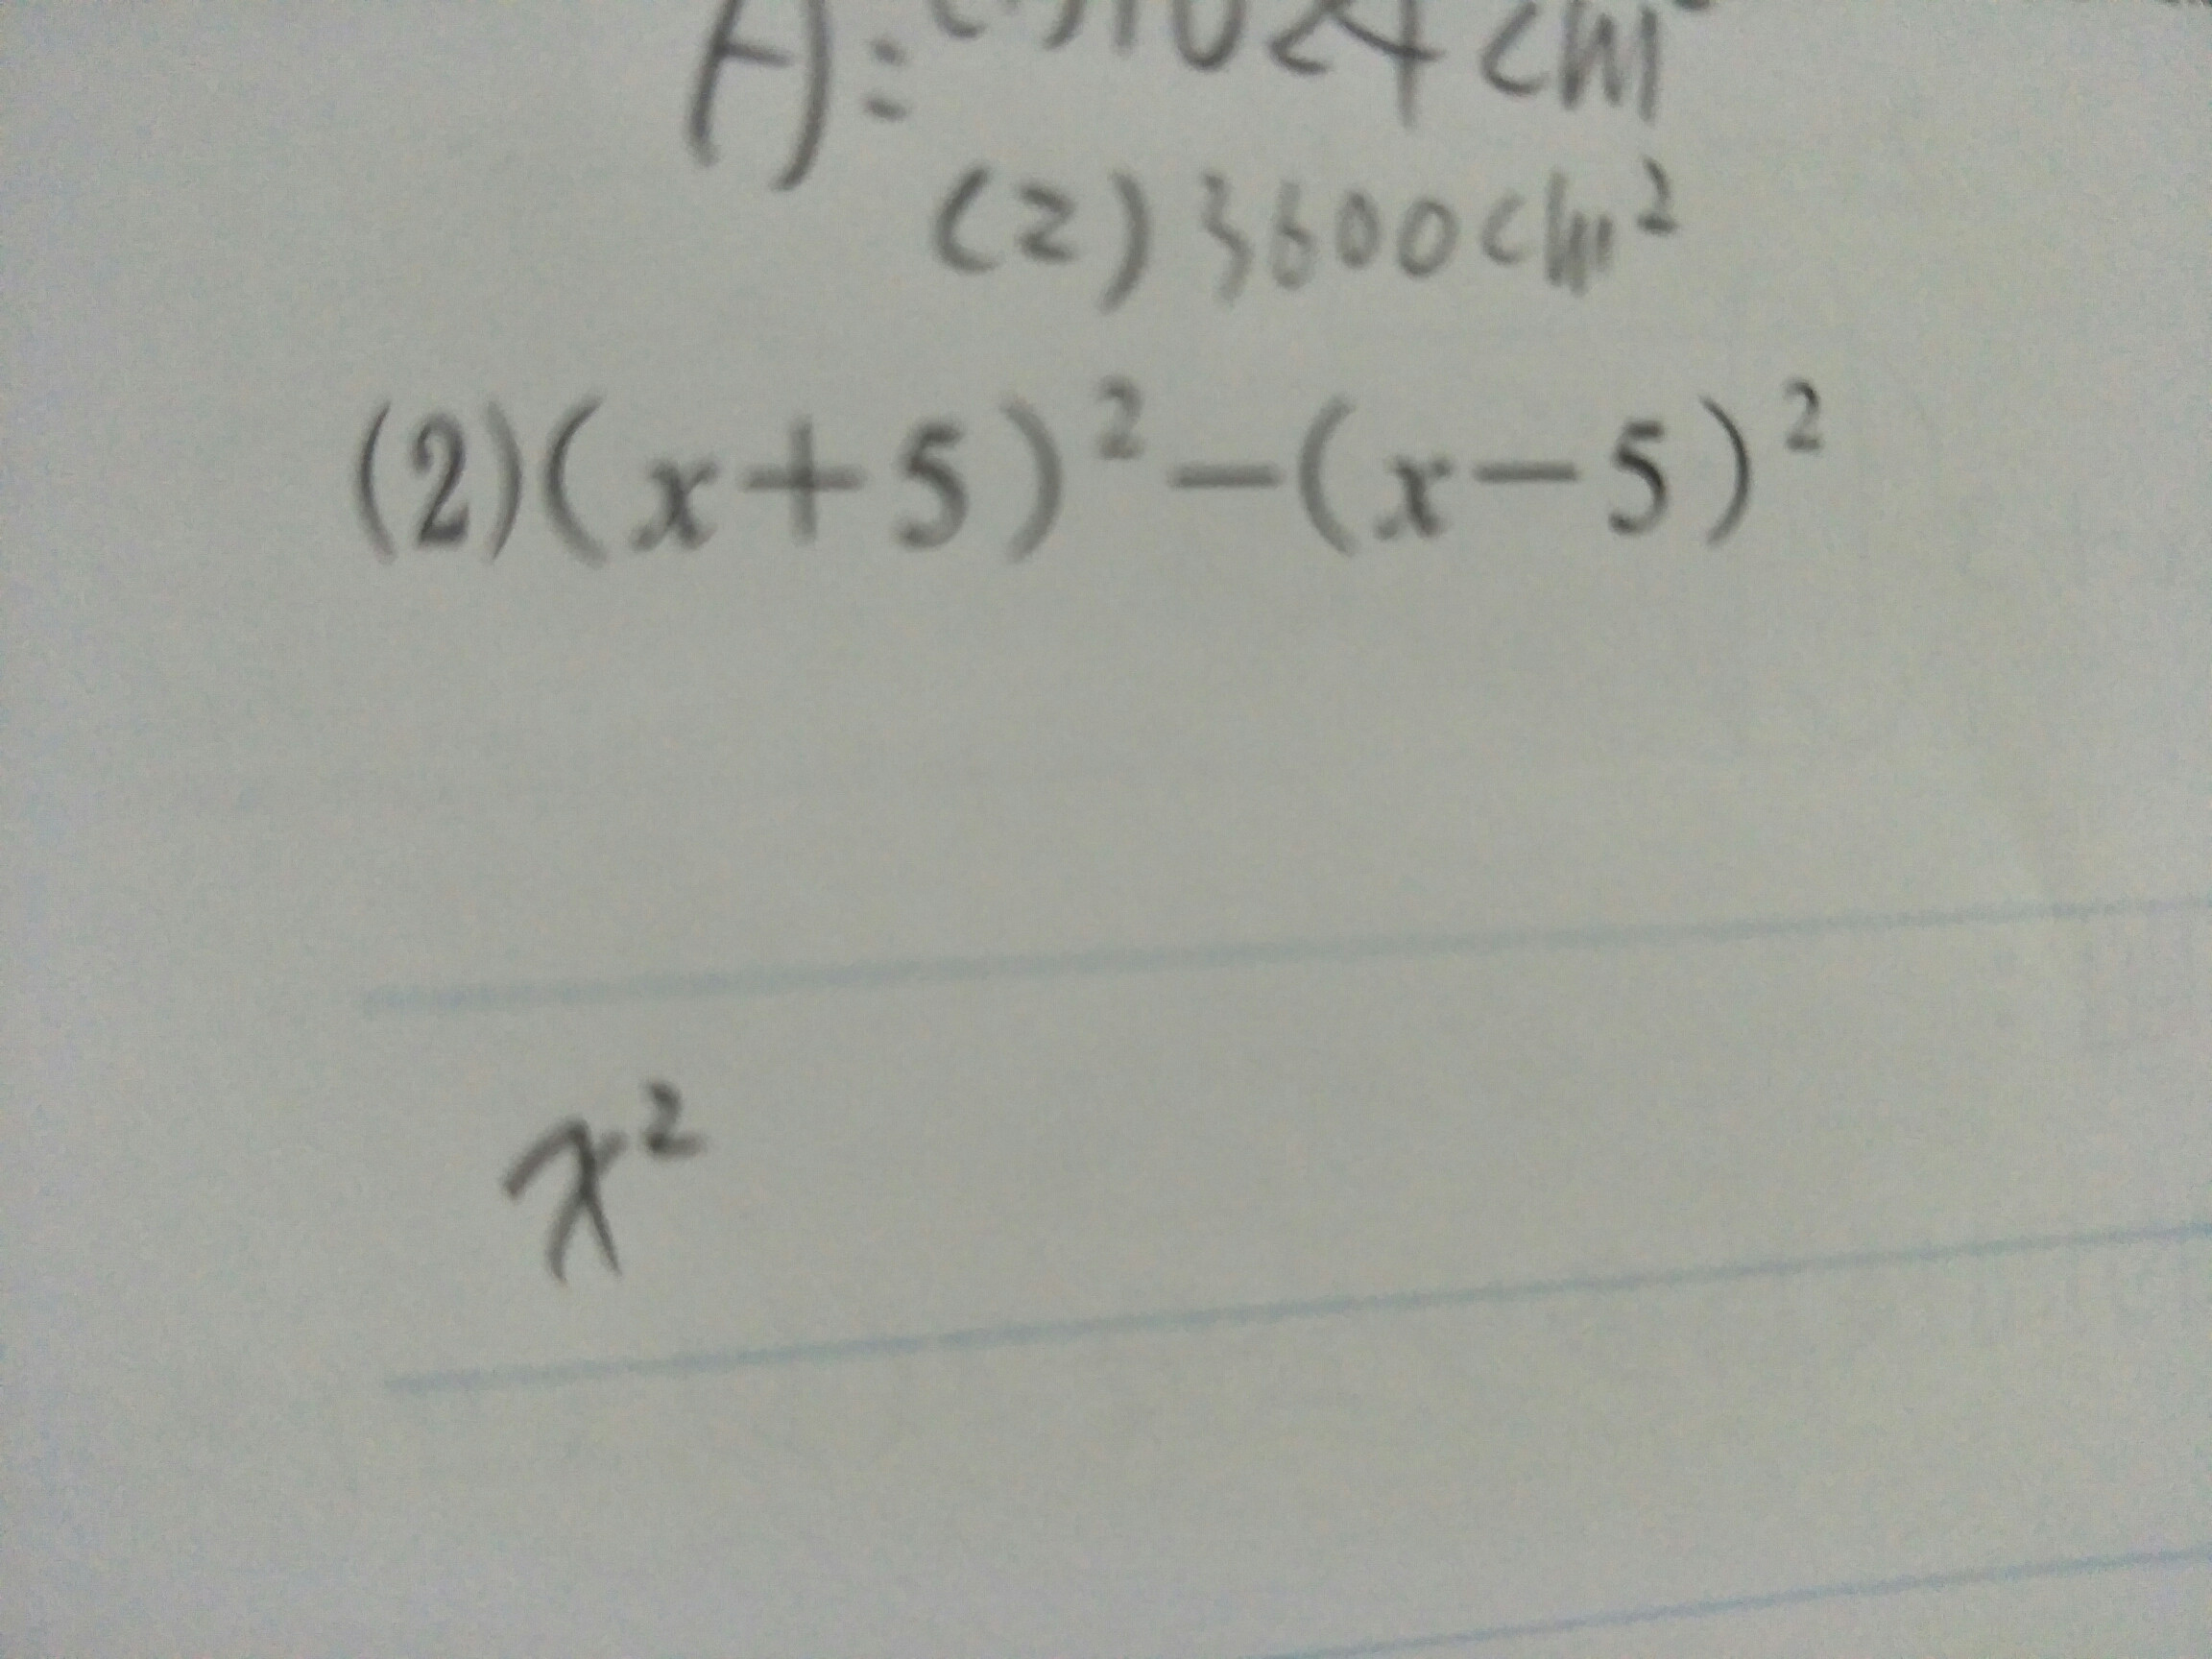 A: (1) 1024 cm²
(2) 3600 cm²
(2)(x+5)²-(x-5)²
x²